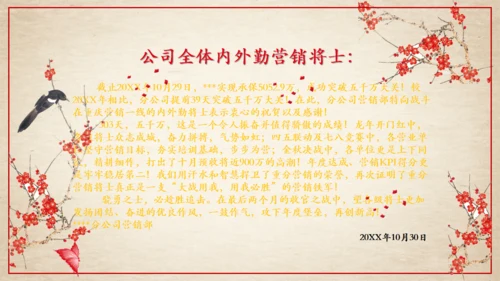 公司全体内外勤营销将士：
截止20XX年10月29日，***实现承保5052.9万，成功突破五千万大关！较
20XX年相比，分公司提前39天突破五千万大关！在此，分公司营销部特向战斗
在营销一线的内外勤将士表示衷心的祝贺以及感谢！
303天，五千万，这是一个令人振奋并值得骄傲的成绩！龙年开门红中，
将士众志成城，奋力拼搏，气势如虹；四五联动及七八竞赛中，各营业单
坚守营销目标，夯实培训基础，步步为营；金秋决战中，各单位更是上下同
，精耕细作，打出了十月预收将近900万的高潮！年度达成、营销KPI得分更
灵牢牢稳居第二！我们用汗水和智慧捍卫了重分营销的荣誉，再次证明了重分
营销将士真正是一支“大战用我，用我必胜”的营销铁军！
骁勇之士，必趁胜追击。在最后两个月的收官之战中，望 将士更加
发扬团结、奋进的优良作风，一鼓作气，攻下年度堡垒，再创新高！
****分公司营销部
20XX年10月30日